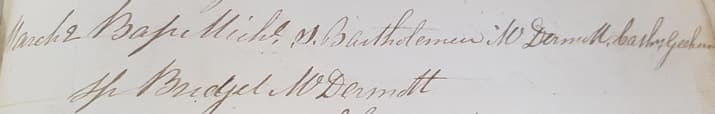 March 2 Bapt Michl. s. Bartholemew McDermott, Cathr
sp Bridget McDermott